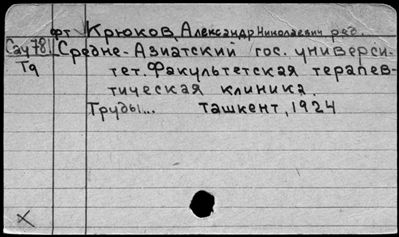 фт Крюков, Александр Николаевич ред.
Сау78 Средне-Азиатский гос. универси-
Тq тет. Факультетская терапев-
тическая клиника.
Труды... Ташкент, 1924
х